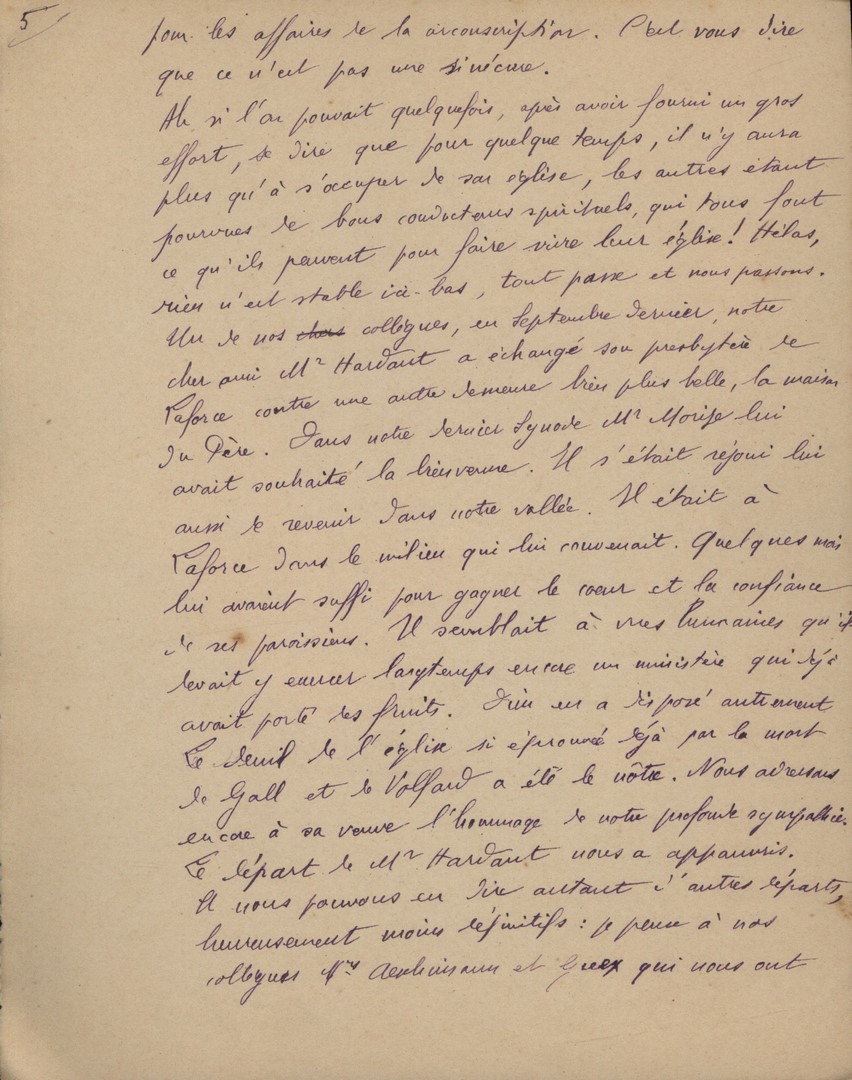 5
pour les affaires de la circonscription. C'est vous dire
que ce n'est pas une sinécure.
Ah si l'on pouvait quelquefois, après avoir fourni un gros
effort, se dire que pour quelque temps, il n'y aura
plus qu'à s'occuper de son église, les autres étant
pourvues de bons conducteurs spirituels, qui tous font
ce qu'ils peuvent pour faire vivre leur église! Hélas,
rien n'est stable ici-bas, tout passe et nous passons.
Un de nos chers collègues, en Septembre dernier, notre
cher ami Mr Hardant a échangé son presbytère de
Laforce contre une autre demeure bien plus belle, la maison
du Père. Dans notre dernier Synode Mr Morize lui
avait souhaité la bienvenue. Il s'était réjoui lui
aussi de revenir dans notre vallée. Il était à
Laforce dans le milieu qui lui convenait. Quelques mois
lui avaient suffi pour gagner le coeur et la confiance
de ses paroissiens. Il semblait à vues humaines qu'il
devait y exercer longtemps encore un ministère qui déjà
avait porté des fruits. Dieu en a disposé autrement
Le deuil de l'église si éprouvée déjà par la mort
de Gall et de Volfard a été le nôtre. Nous adressons
encore à sa veuve l'hommage de notre profonde sympathie.
Le départ de Mr Hardant nous a appauvris.
Et nous pouvons en dire autant d'autres départs,
heureusement moins définitifs: je pense à nos
collègues et qui nous ont